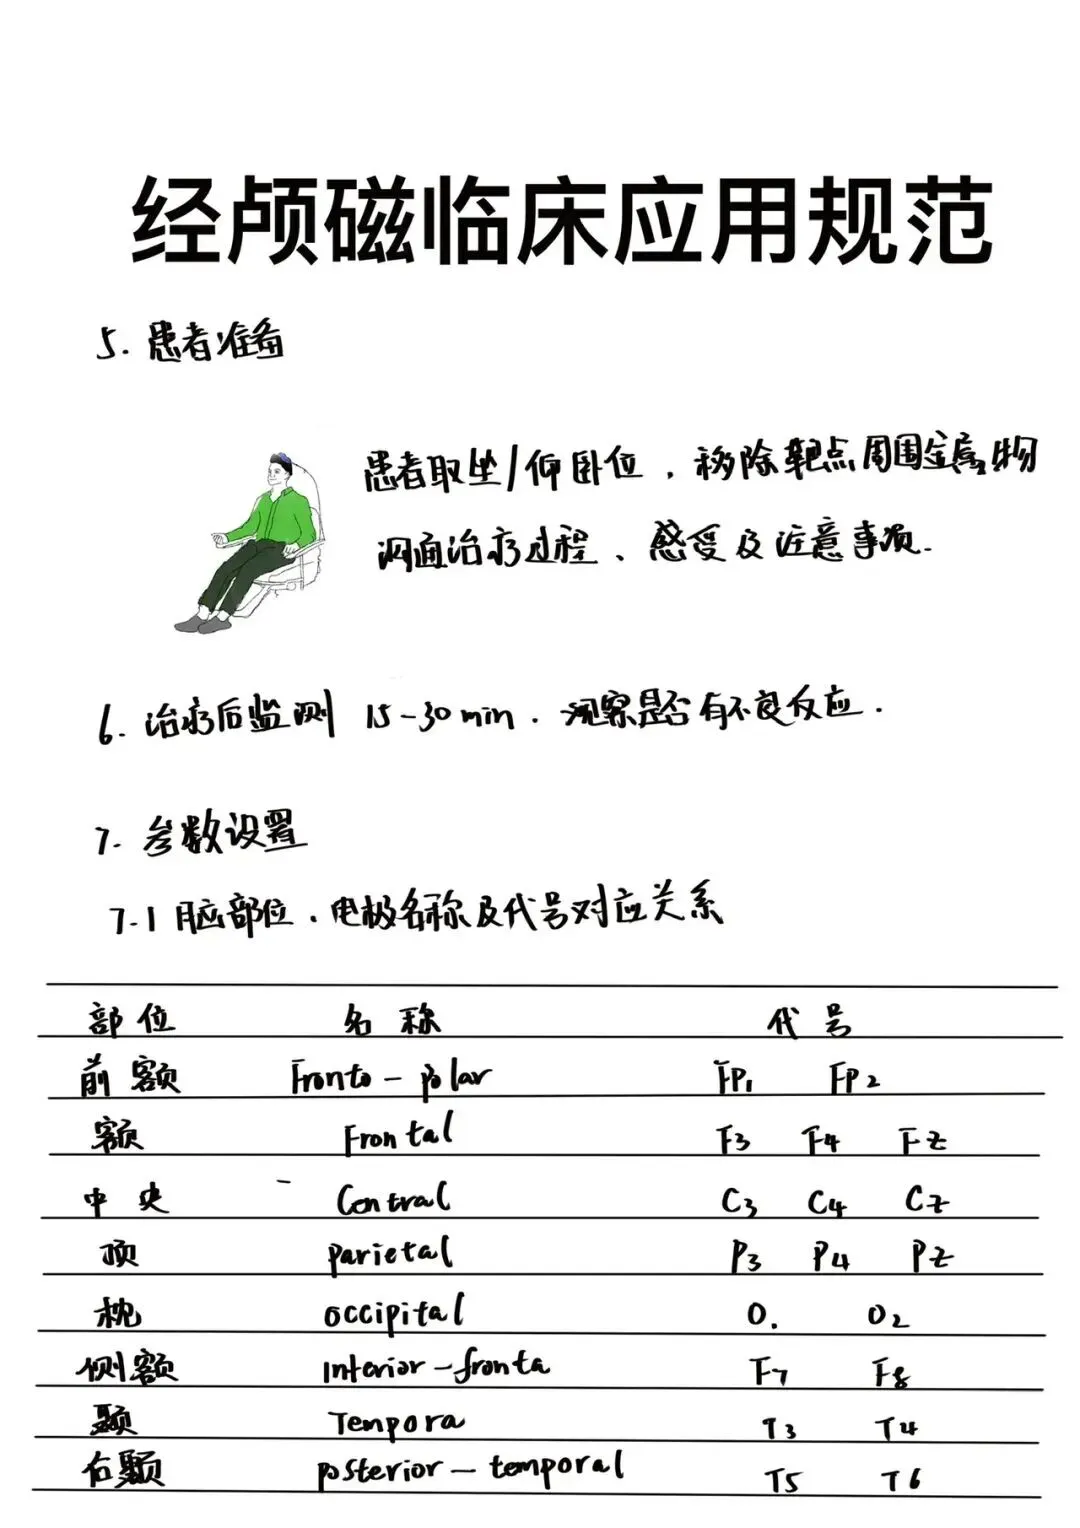 经颅磁临床应用规范
5. 患者准备
患者取坐/仰卧位，移除靶点周围金属物
沟通治疗过程、感受及注意事项.
6. 治疗后监测 15-30 min. 观察是否有不良反应.
7. 参数设置
7.1 脑部位、电极名称及代号对应关系
部位 名称 代号
前额 Fronto-polar FP1 FP2
额 Frontal F3 F4 FZ
中央 Central C3 C4 CZ
顶 parietal P3 P4 PZ
枕 occipital O. O2
侧额 Interior-fronta F7 F8
颞 Tempora T3 T4
右颞 posterior-temporal T5 T6